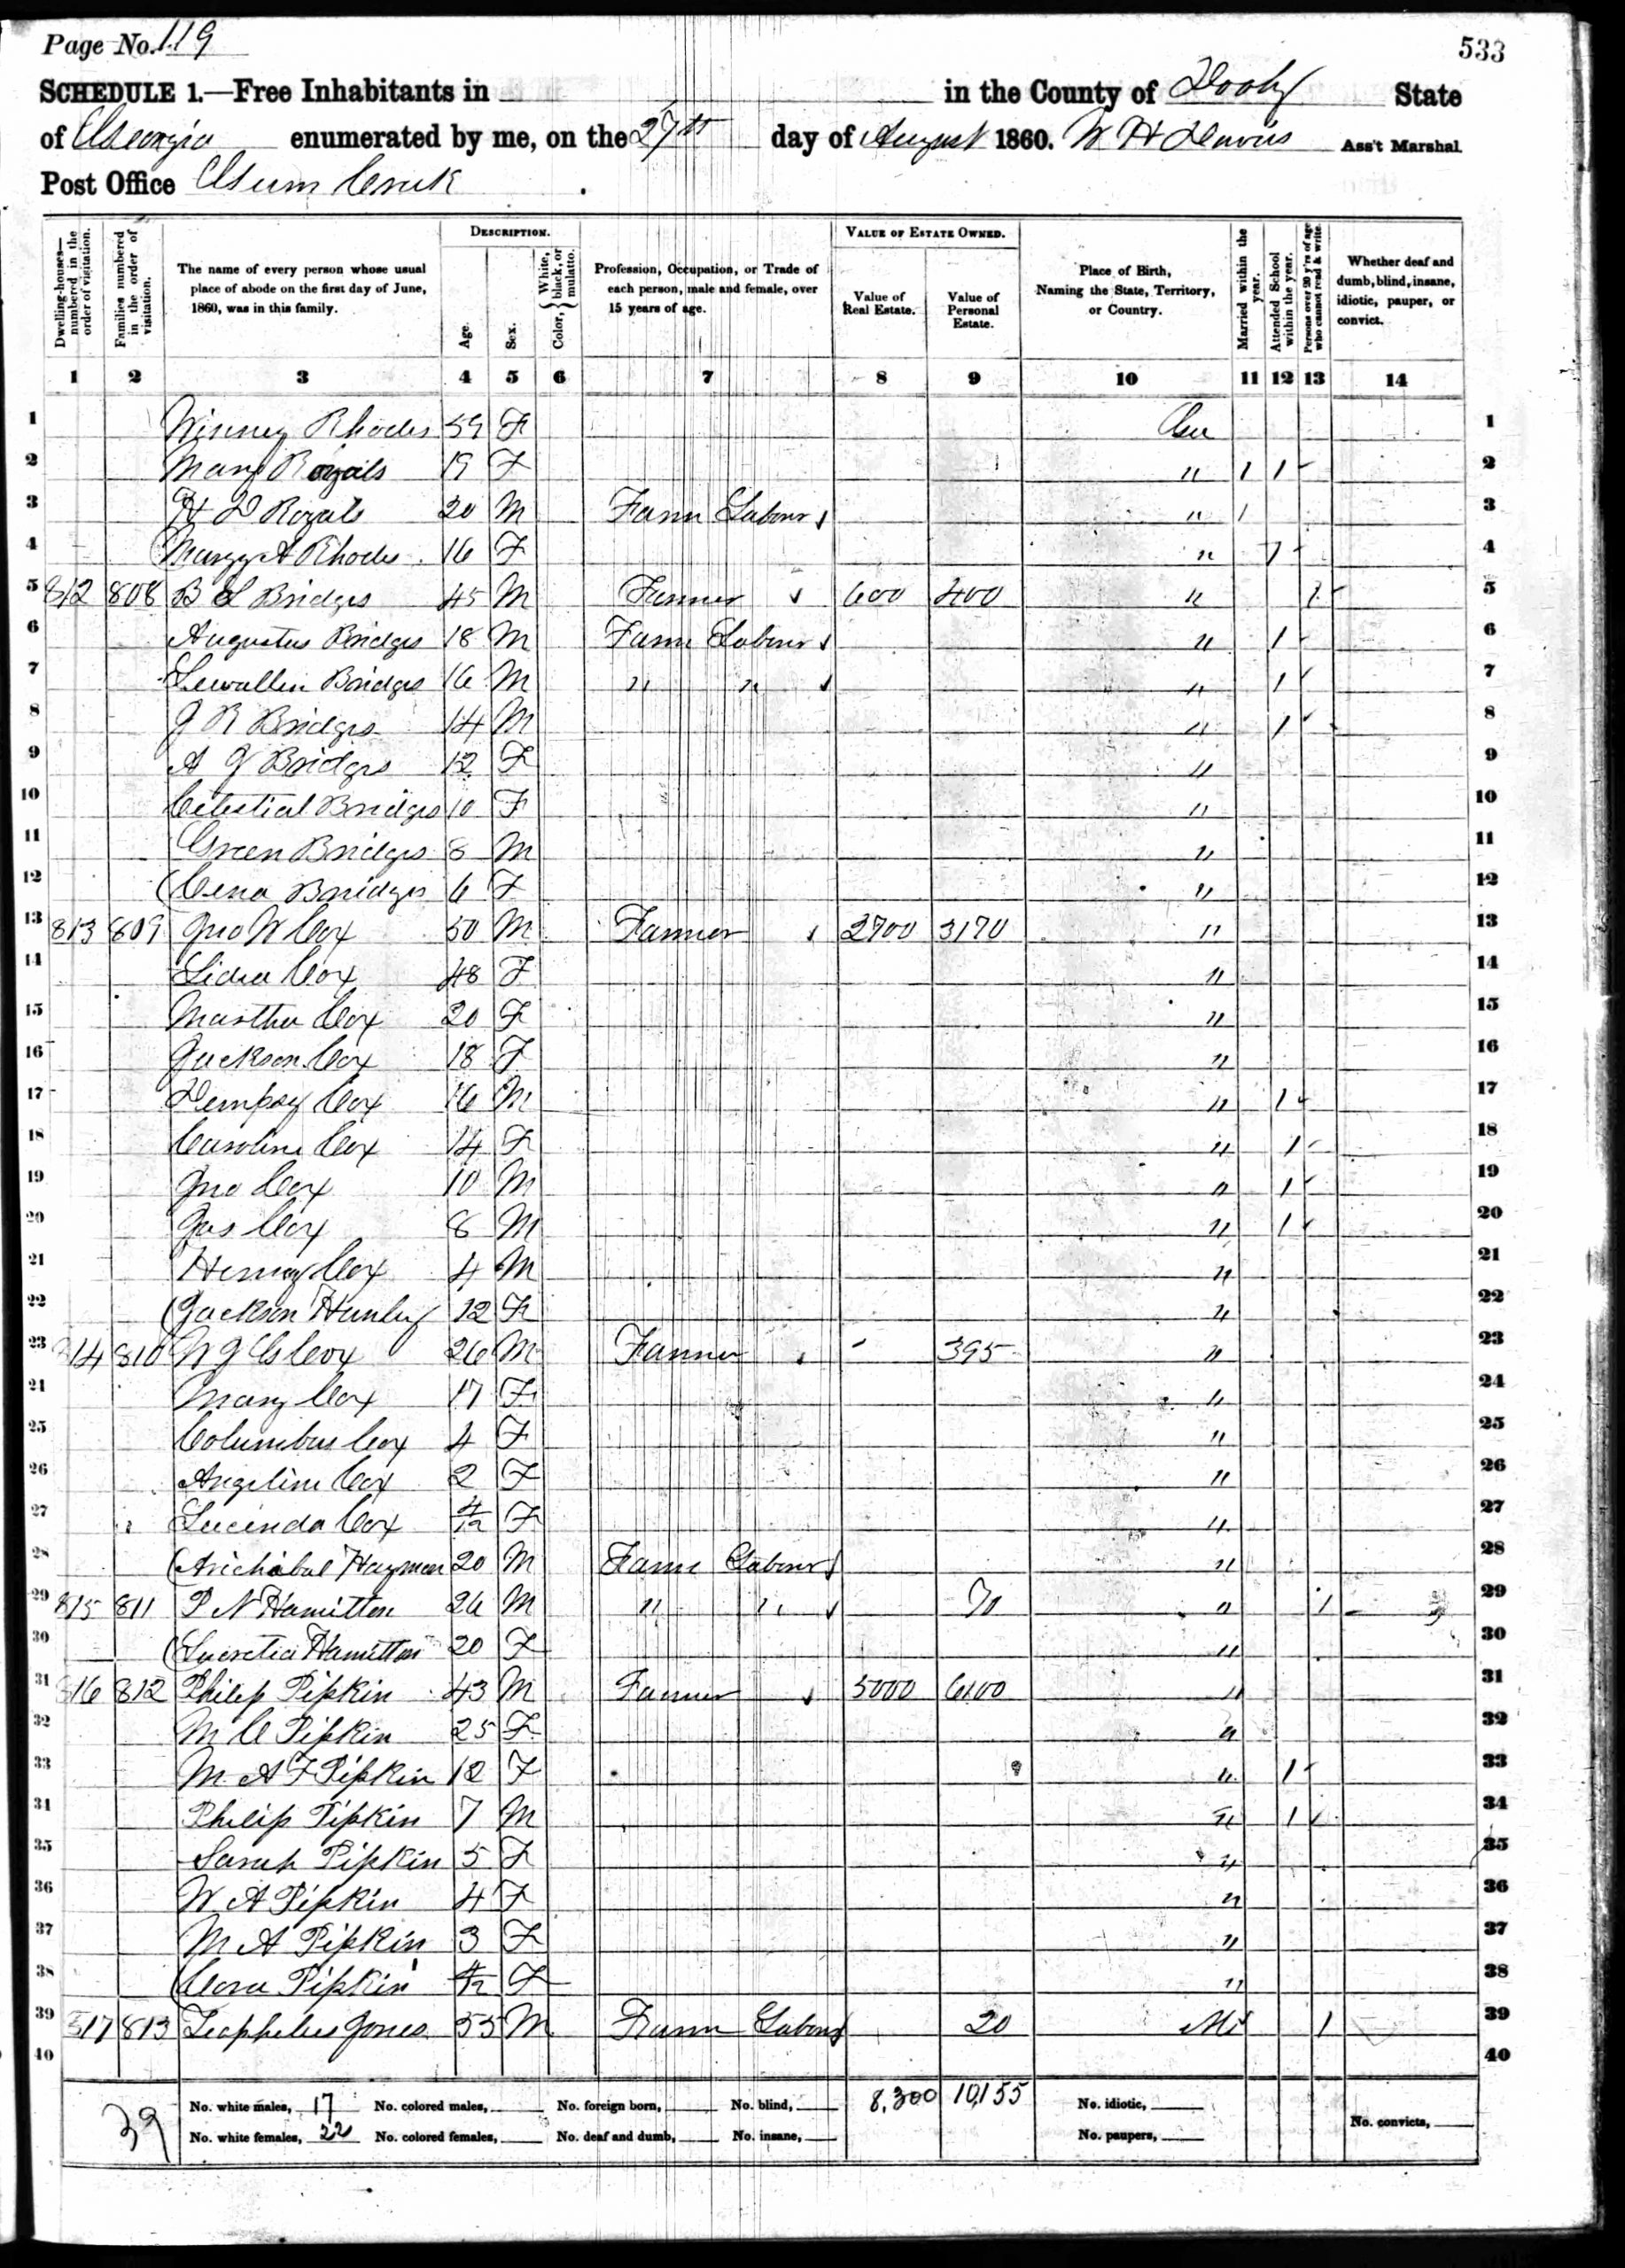 Page No. 119
533
SCHEDULE 1.—Free Inhabitants in in the County of Dooly State
of Georgia enumerated by me, on the 27th day of August 1860. W H Davies Ass't Marshal
Post Office Gum Creek
Dwelling-houses—numbered in the order of visitation.
Families numbered in the order of visitation.
The name of every person whose usual place of abode on the first day of June, 1860, was in this family.
DESCRIPTION.
Age.
Sex.
Color, { White, black, or mulatto.
Profession, Occupation, or Trade of each person, male and female, over 15 years of age.
VALUE OF ESTATE OWNED.
Value of Real Estate.
Value of Personal Estate.
Place of Birth, Naming the State, Territory, or Country.
Married within the year.
Attended School within the year.
Persons over 20 y'rs of age who cannot read & write.
Whether deaf and dumb, blind, insane, idiotic, pauper, or convict.
1 2 3 4 5 6 7 8 9 10 11 12 13 14
1 Winney Rhodes 59 F Geo 1
2 Mary Royals 19 F " 1 1 2
3 H D Royals 20 M Farm Labour " 1 3
4 Margy A Rhodes 16 F " 1 4
5 812 808 B L Bridges 45 M Farmer 600 400 " 1 5
6 Augustus Bridges 18 M Farm Labour " 1 6
7 Lewallen Bridges 16 M " " " 1 7
8 J R Bridges 14 M " 1 8
9 A J Bridges 12 F " 9
10 Celestial Bridges 10 F " 10
11 Green Bridges 8 M " 11
12 Cena Bridges 6 F " 12
13 813 809 Jno W Cox 50 M Farmer 2700 3170 " 13
14 Lidia Cox 48 F " 14
15 Martha Cox 20 F " 15
16 Jackson Cox 18 F " 16
17 Dempsey Cox 16 M " 1 17
18 Caroline Cox 14 F " 1 18
19 Jno Cox 10 M " 1 19
20 Jas Cox 8 M " 1 20
21 Henry Cox 4 M " 21
22 Jackson Hunley 12 F " 22
23 814 810 W J G Cox 26 M Farmer - 395 " 23
24 Mary Cox 17 F " 24
25 Columbus Cox 4 F " 25
26 Angeline Cox 2 F " 26
27 Lucinda Cox 4/12 F " 27
28 Archabal Hayman 20 M Farm Labour " 28
29 815 811 P N Hamilton 26 M " " 70 " 1 29
30 Lucretia Hamilton 20 F " 30
31 816 812 Philip Pipkin 43 M Farmer 5000 6100 " 31
32 M C Pipkin 25 F " 32
33 M A F Pipkin 12 F " 1 33
34 Philip Pipkin 7 M " 1 34
35 Sarah Pipkin 5 F " 35
36 W A Pipkin 4 F " 36
37 M A Pipkin 3 F " 37
38 Cora Pipkin 4/12 F " 38
39 817 813 Jones 55 M Farm Labour 20 1 39
40 40
39
No. white males, 17 No. colored males, No. foreign born, No. blind, 8,300 10,155 No. idiotic,
No. white females, 22 No. colored females, No. deaf and dumb, No. insane, No. paupers, No. convicts,